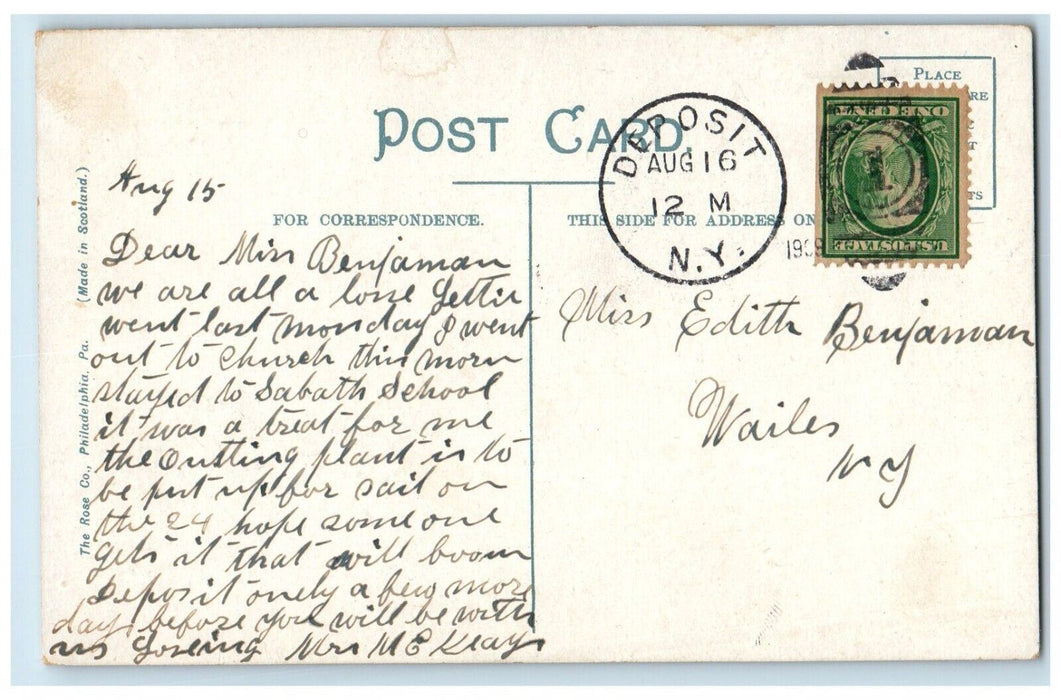 POST CARD.
PLACE
RE
T
TS
DEPOSIT
AUG 16
12 M
N.Y.
1909
ONE CENT
1
U.S. POSTAGE
FOR CORRESPONDENCE.
THIS SIDE FOR ADDRESS ON
The Rose Co., Philadelphia, Pa. (Made in Scotland.)
Aug 15
Dear Miss Benjaman
we are all a lone
went last monday I went
out to church this morn
stayed to Sabath School
it was a treat for me
the Cutting plant is to
be put up for sail on
the 24 hope some one
gets it that will boom
Deposit onely a few more
days before you will be with
us Mrs M E
Miss Edith Benjaman
Wailes
N Y